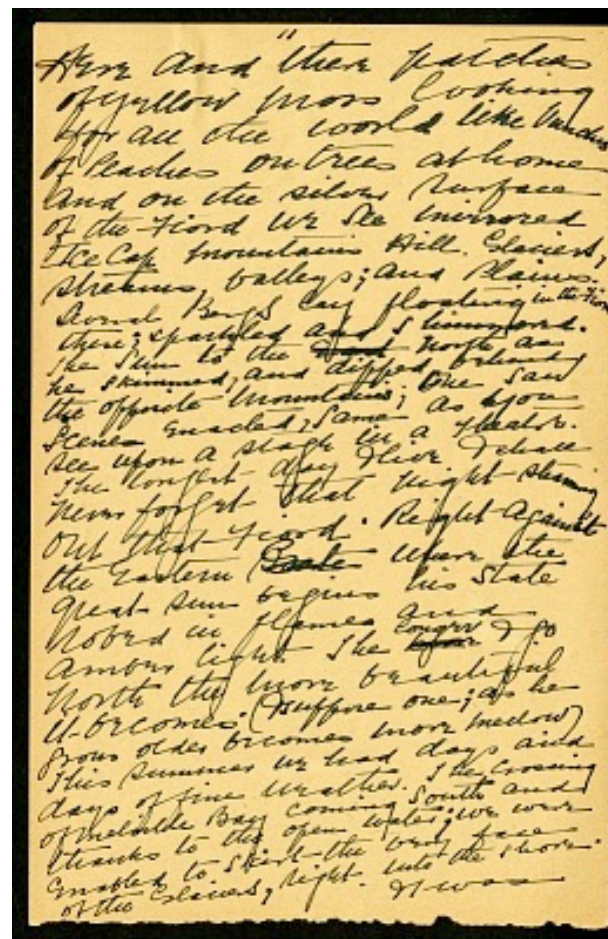 "
Here and there patches
of yellow moss looking
for all the world like bunches
of Peaches on trees at home
and on the silver surface
of the Fiord we see mirrored
Ice Cap Mountains Hill. Glaciers,
streams, valleys; and Plains.
Several Bergs lay floating in the Fiord
there; sparkled and shimmered.
The Sun to the North as
he skimmed, and dipped behind
the opposite Mountains; One saw
Scenes enacted, Same as you
see upon a stage in a theator.
The longest day I live I shall
never forget that night skimming
out that Fiord. Right Against
the Eastern Gate where the
great sun begins his State
Robed in flames and
Amber light. The longer I go
North the more beautiful
it becomes. (Suppose one; as he
grows older becomes more mellow)
This Summer we had days and
days of fine weather. The crossing
of Melville Bay coming South and
thanks to the open water; we were
enabled to skirt the very face
of the Glaciers, right into the shore.
It was